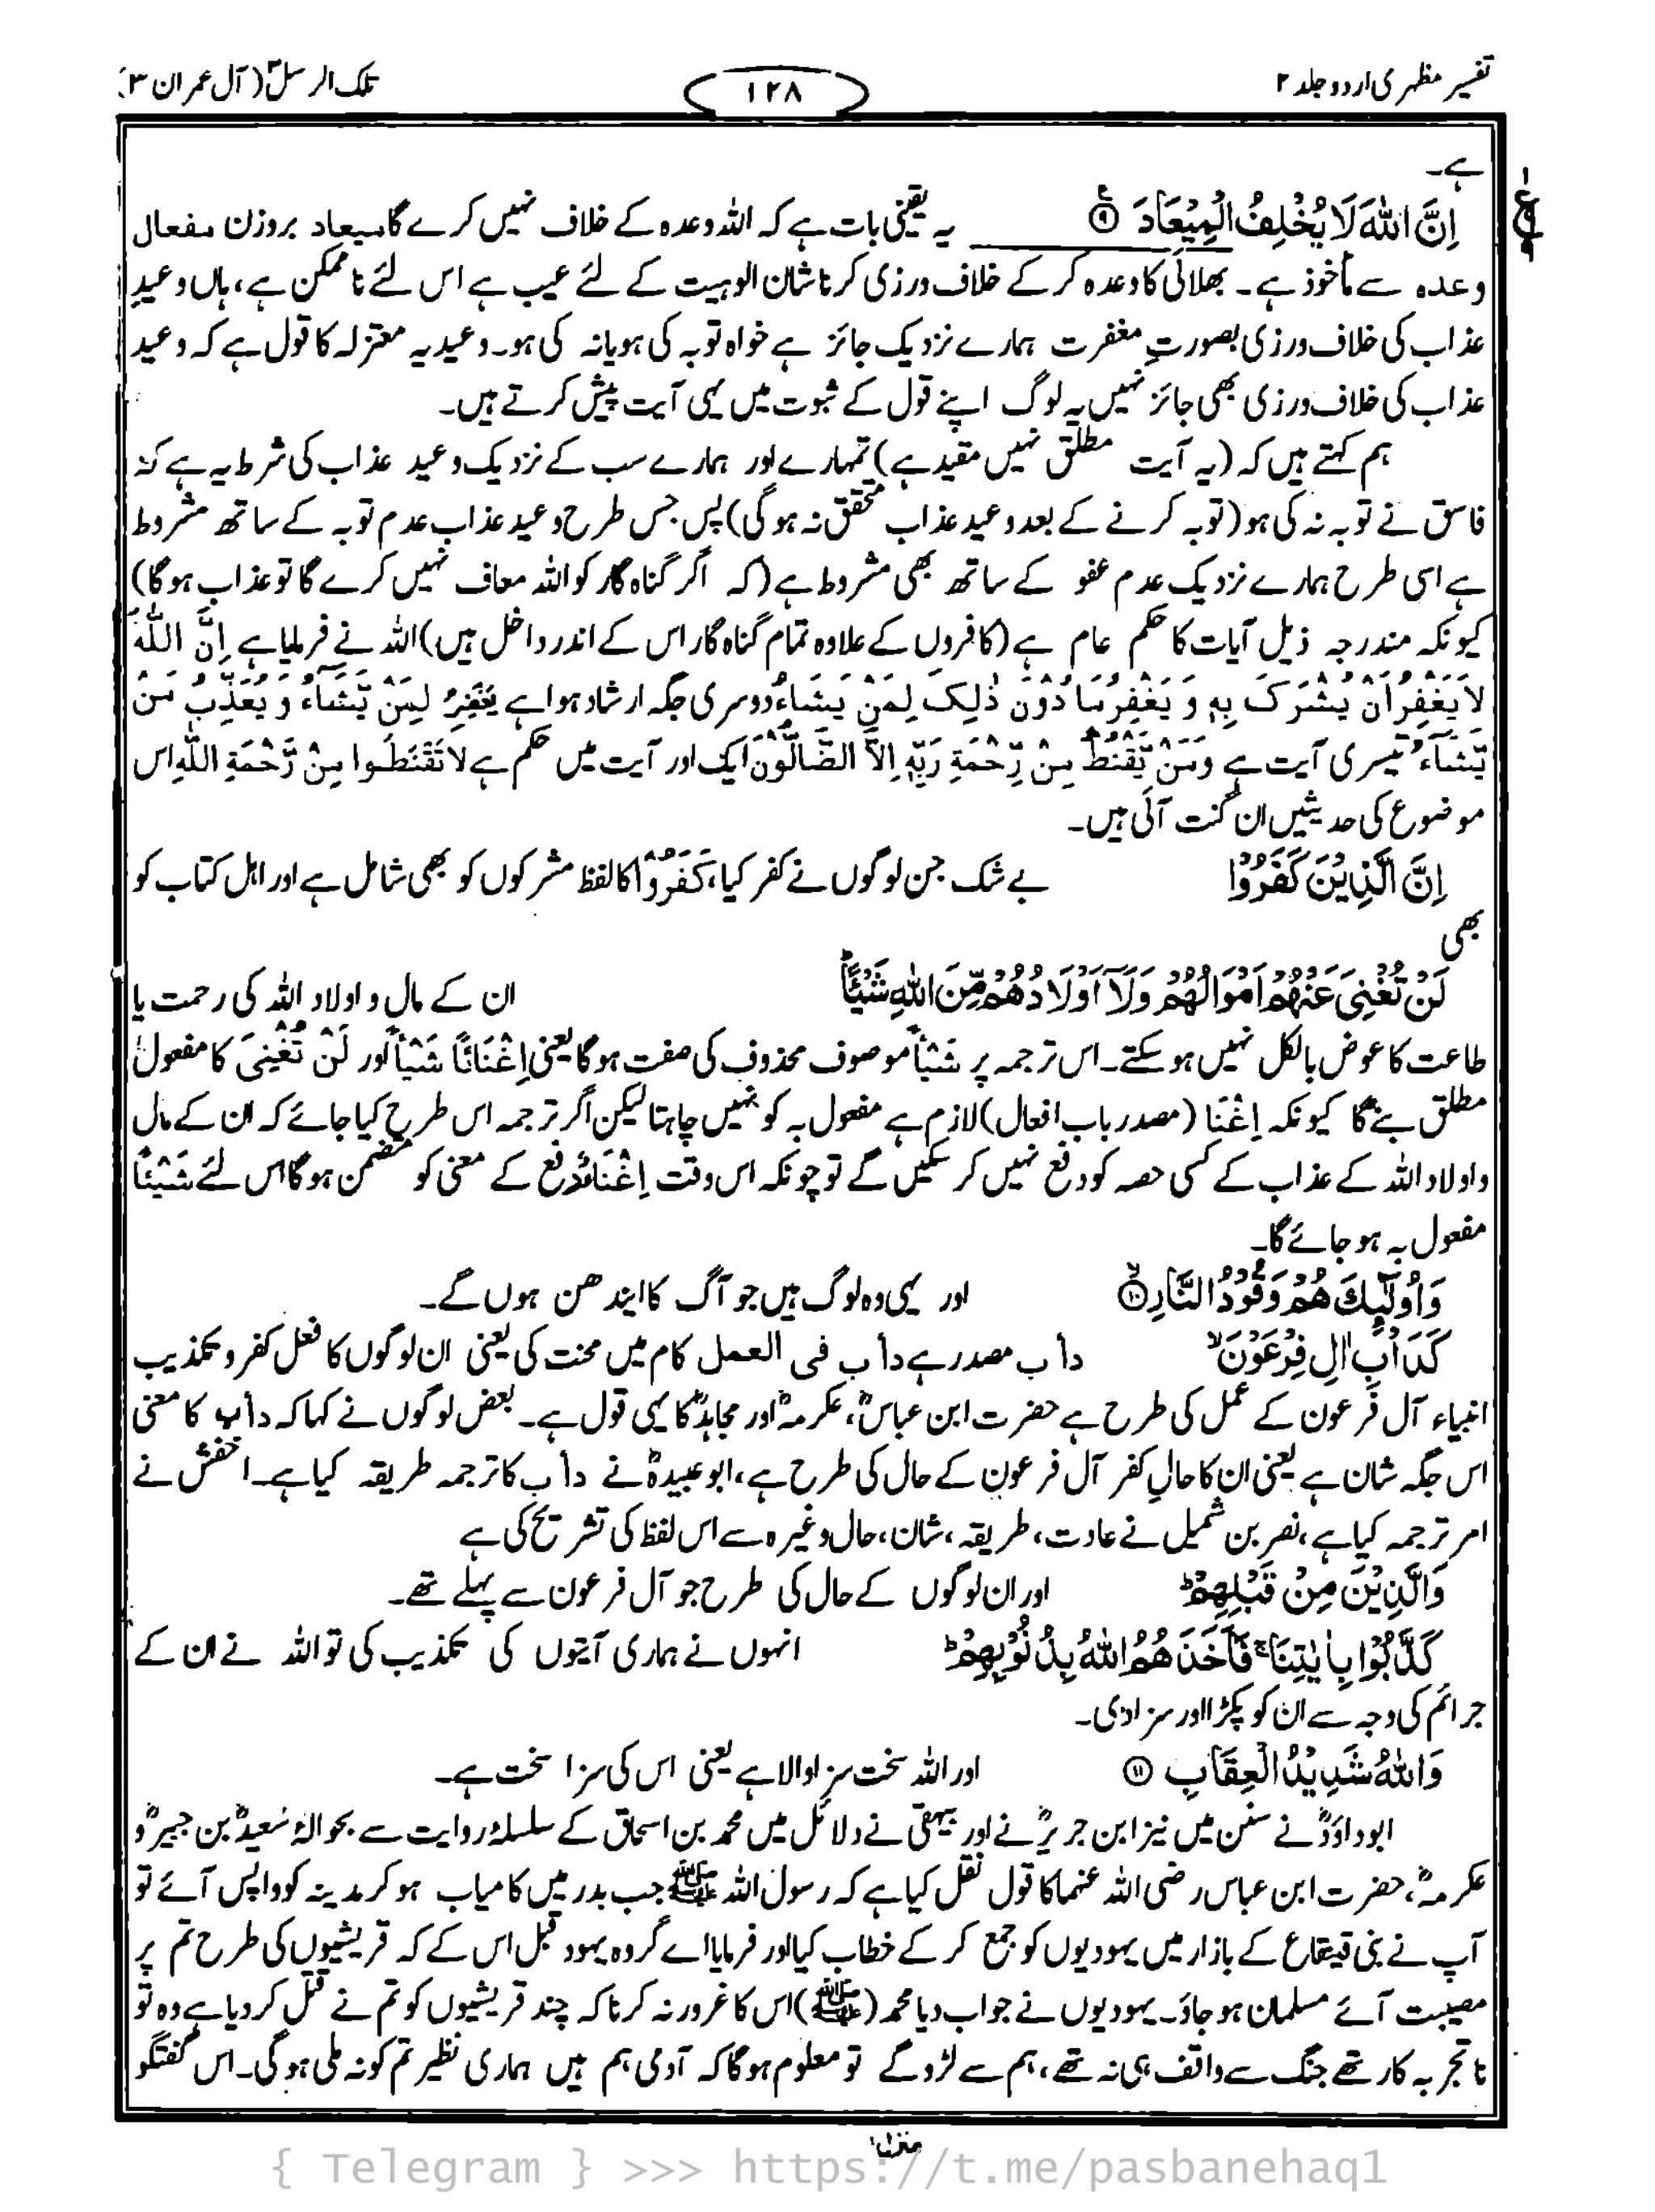 تفسیر مظہری اردو جلد ۲
۱۲۸
تلک الرسل ۳ (آل عمران ۳)
ہے۔
اِنَّ اللّٰهَ لَا یُخْلِفُ الْمِیْعَادَ ۹ یہ یقینی بات ہے کہ اللہ وعدہ کے خلاف نہیں کرے گا میعاد بروزن مفعال
وعدہ سے مأخوذ ہے۔ بھلائی کا وعدہ کر کے خلاف ورزی کرنا شان الوہیت کے لئے عیب ہے اس لئے ناممکن ہے، ہاں وعیدِ
عذاب کی خلاف ورزی بصورتِ مغفرت ہمارے نزدیک جائز ہے خواہ توبہ کی ہو یا نہ کی ہو۔ وعیدیہ معتزلہ کا قول ہے کہ وعید
عذاب کی خلاف ورزی بھی جائز نہیں یہ لوگ اپنے قول کے ثبوت میں یہی آیت پیش کرتے ہیں۔
ہم کہتے ہیں کہ (یہ آیت مطلق نہیں مقید ہے) تمہارے اور ہمارے سب کے نزدیک وعید عذاب کی شرط یہ ہے کہ
فاسق نے توبہ نہ کی ہو (توبہ کرنے کے بعد وعید عذاب متحقق نہ ہوگی) پس جس طرح وعید عذاب عدم توبہ کے ساتھ مشروط
ہے اسی طرح ہمارے نزدیک عدم عفو کے ساتھ بھی مشروط ہے (کہ اگر گناہ گار کو اللہ معاف نہیں کرے گا تو عذاب ہوگا)
کیونکہ مندرجہ ذیل آیات کا حکم عام ہے (کافروں کے علاوہ تمام گناہ گار اس کے اندر داخل ہیں) اللہ نے فرمایا ہے اِنَّ اللّٰهَ
لَا یَغْفِرُ اَنْ یُّشْرَکَ بِهٖ وَ یَغْفِرُ مَا دُوْنَ ذٰلِکَ لِمَنْ یَّشَاءُ دوسری جگہ ارشاد ہوا ہے یَغْفِرُ لِمَنْ یَّشَآءُ وَ یُعَذِّبُ مَنْ
یَّشَآءُ تیسری آیت ہے وَمَنْ یَّقْنَطُ مِنْ رَّحْمَةِ رَبِّهٖ اِلَّا الضَّالُّوْنَ ایک اور آیت میں حکم ہے لَا تَقْنَطُوا مِنْ رَّحْمَةِ اللّٰهِ اس
موضوع کی حدیثیں ان گنت آئی ہیں۔
اِنَّ الَّذِیْنَ كَفَرُوْا بے شک جن لوگوں نے کفر کیا، کَفَرُوْا کا لفظ مشرکوں کو بھی شامل ہے اور اہل کتاب کو
بھی
لَنْ تُغْنِیَ عَنْهُمْ اَمْوَالُهُمْ وَلَاۤ اَوْلَادُهُمْ مِّنَ اللّٰهِ شَیْـًٔاؕ ان کے مال و اولاد اللہ کی رحمت یا
طاعت کا عوض بالکل نہیں ہو سکتے۔ اس ترجمہ پر شَیْأً موصوف محذوف کی صفت ہوگا یعنی اِغْنَائًا شَیْأً اور لَنْ تُغْنِیَ کا مفعول
مطلق بنے گا کیونکہ اِغْنَا (مصدر باب افعال) لازم ہے مفعول بہ کو نہیں چاہتا لیکن اگر ترجمہ اس طرح کیا جائے کہ ان کے مال
و اولاد اللہ کے عذاب کے کسی حصہ کو دفع نہیں کر سکیں گے تو چونکہ اس وقت اِغْنَاءُ دفع کے معنی کو متضمن ہوگا اس لئے شَیْئاً
مفعول بہ ہو جائے گا۔
وَاُولٰٓىِٕكَ هُمْ وَقُوْدُ النَّارِ ۱۰ اور یہی وہ لوگ ہیں جو آگ کا ایندھن ہوں گے۔
كَدَاْبِ اٰلِ فِرْعَوْنَۙ دأب مصدر ہے دأب فی العمل کام میں محنت کی یعنی ان لوگوں کا فعل کفر و تکذیب
انبیاء آل فرعون کے عمل کی طرح ہے حضرت ابن عباسؓ، عکرمہؒ اور مجاہدؒ کا یہی قول ہے۔ بعض لوگوں نے کہا کہ دأب کا معنی
اس جگہ شان ہے یعنی ان کا حالِ کفر آل فرعون کے حال کی طرح ہے، ابو عبیدہؒ نے دأب کا ترجمہ طریقہ کیا ہے۔ اخفشؒ نے
امر ترجمہ کیا ہے، نصر بن شمیل نے عادت، طریقہ، شان، حال وغیرہ سے اس لفظ کی تشریح کی ہے
وَالَّذِیْنَ مِنْ قَبْلِهِمْؕ اور ان لوگوں کے حال کی طرح جو آل فرعون سے پہلے تھے۔
كَذَّبُوْا بِاٰیٰتِنَاۚ فَاَخَذَهُمُ اللّٰهُ بِذُنُوْبِهِمْؕ انہوں نے ہماری آیتوں کی تکذیب کی تو اللہ نے ان کے
جرائم کی وجہ سے ان کو پکڑا اور سزا دی۔
وَاللّٰهُ شَدِیْدُ الْعِقَابِ ۱۱ اور اللہ سخت سزا والا ہے یعنی اس کی سزا سخت ہے۔
ابوداؤدؒ نے سنن میں نیز ابن جریرؒ نے اور بیہقی نے دلائل میں محمد بن اسحاق کے سلسلۂ روایت سے بحوالۂ سعیدؒ بن جبیرؒ و
عکرمہؒ، حضرت ابن عباس رضی اللہ عنہما کا قول نقل کیا ہے کہ رسول اللہ ﷺ جب بدر میں کامیاب ہو کر مدینہ کو واپس آئے تو
آپ نے بنی قینقاع کے بازار میں یہودیوں کو جمع کر کے خطاب کیا اور فرمایا اے گروہ یہود قبل اس کے کہ قریشیوں کی طرح تم پر
مصیبت آئے مسلمان ہو جاؤ۔ یہودیوں نے جواب دیا محمد (ﷺ) اس کا غرور نہ کرنا کہ چند قریشیوں کو تم نے قتل کر دیا ہے وہ تو
ناتجربہ کار تھے جنگ سے واقف ہی نہ تھے، ہم سے لڑو گے تو معلوم ہوگا کہ آدمی ہم ہیں ہماری نظیر تم کو نہ ملی ہوگی۔ اس گفتگو
منزل۱
{ Telegram } >>> https://t.me/pasbanehaq1